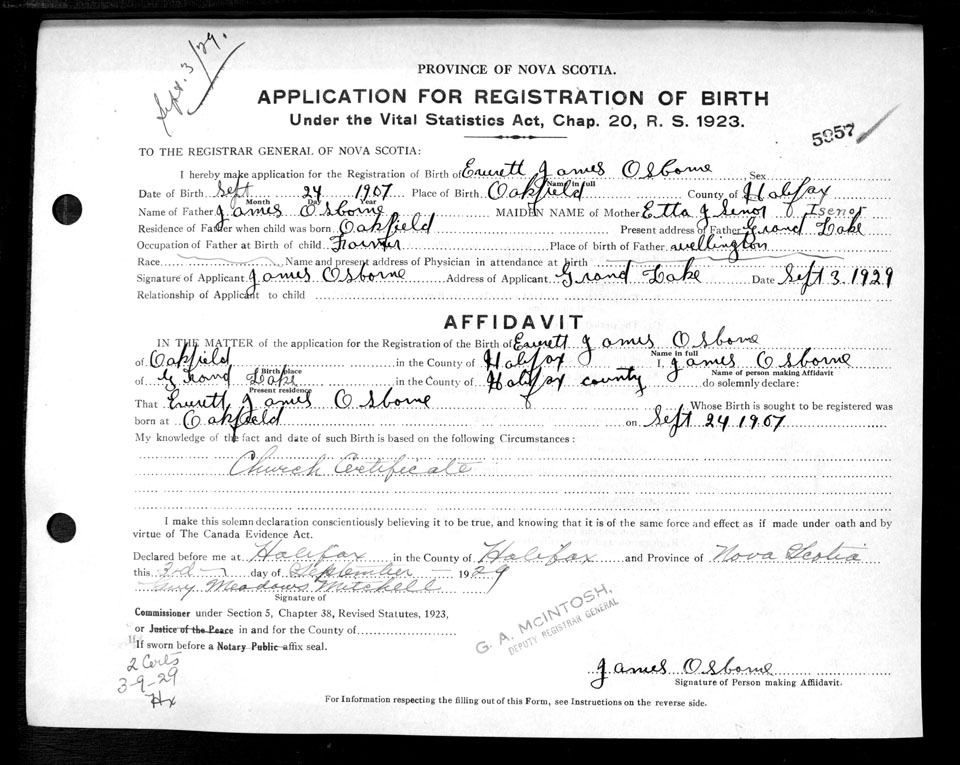 Sept. 3/29.
PROVINCE OF NOVA SCOTIA.
APPLICATION FOR REGISTRATION OF BIRTH
Under the Vital Statistics Act, Chap. 20, R. S. 1923.
5957
TO THE REGISTRAR GENERAL OF NOVA SCOTIA:
I hereby make application for the Registration of Birth of Everett James Osborne Sex
Name in full
Date of Birth Sept 24 1907 Place of Birth Oakfield County of Halifax
Month Day Year
Name of Father James Osborne MAIDEN NAME of Mother Etta J Senor Isenor
Residence of Father when child was born Oakfield Present address of Father Grand Lake
Occupation of Father at Birth of child Farmer Place of birth of Father wellington
Race Name and present address of Physician in attendance at birth
Signature of Applicant James Osborne Address of Applicant Grand Lake Date Sept 3 1929
Relationship of Applicant to child
AFFIDAVIT
IN THE MATTER of the application for the Registration of the Birth of Everett James Osborne
Name in full
of Oakfield in the County of Halifax I, James Osborne
Birth place Name of person making Affidavit
of Grand Lake in the County of Halifax county do solemnly declare:
Present residence
That Everett James Osborne Whose Birth is sought to be registered was
born at Oakfield on Sept 24 1907
My knowledge of the fact and date of such Birth is based on the following Circumstances:
Church Certificate
I make this solemn declaration conscientiously believing it to be true, and knowing that it is of the same force and effect as if made under oath and by
virtue of The Canada Evidence Act.
Declared before me at Halifax in the County of Halifax and Province of Nova Scotia
this 3rd day of September 1929
Meadows Mitchell
Signature of
Commissioner under Section 5, Chapter 38, Revised Statutes, 1923,
or Justice of the Peace in and for the County of
If sworn before a Notary Public affix seal.
G. A. McINTOSH,
DEPUTY REGISTRAR GENERAL
2 Certs
3-9-29
Hx
James Osborne
Signature of Person making Affidavit.
For Information respecting the filling out of this Form, see Instructions on the reverse side.